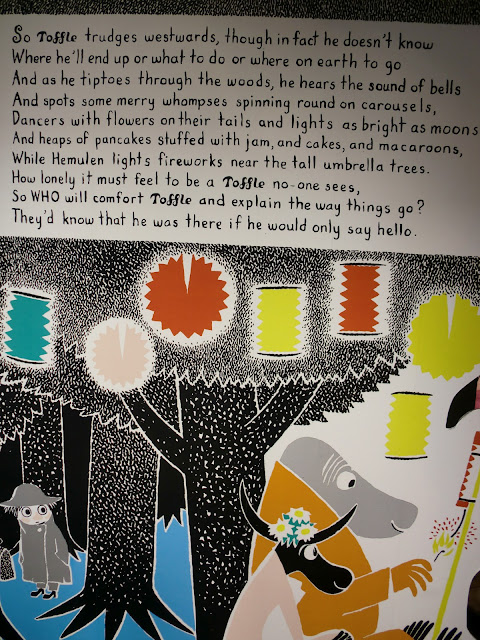 So Toffle trudges westwards, though in fact he doesn't know
Where he'll end up or what to do or where on earth to go
And as he tiptoes through the woods, he hears the sound of bells
And spots some merry whompses spinning round on carousels,
Dancers with flowers on their tails and lights as bright as moons
And heaps of pancakes stuffed with jam, and cakes, and macaroons,
While Hemulen lights fireworks near the tall umbrella trees.
How lonely it must feel to be a Toffle no-one sees,
So WHO will comfort Toffle and explain the way things go?
They'd know that he was there if he would only say hello.